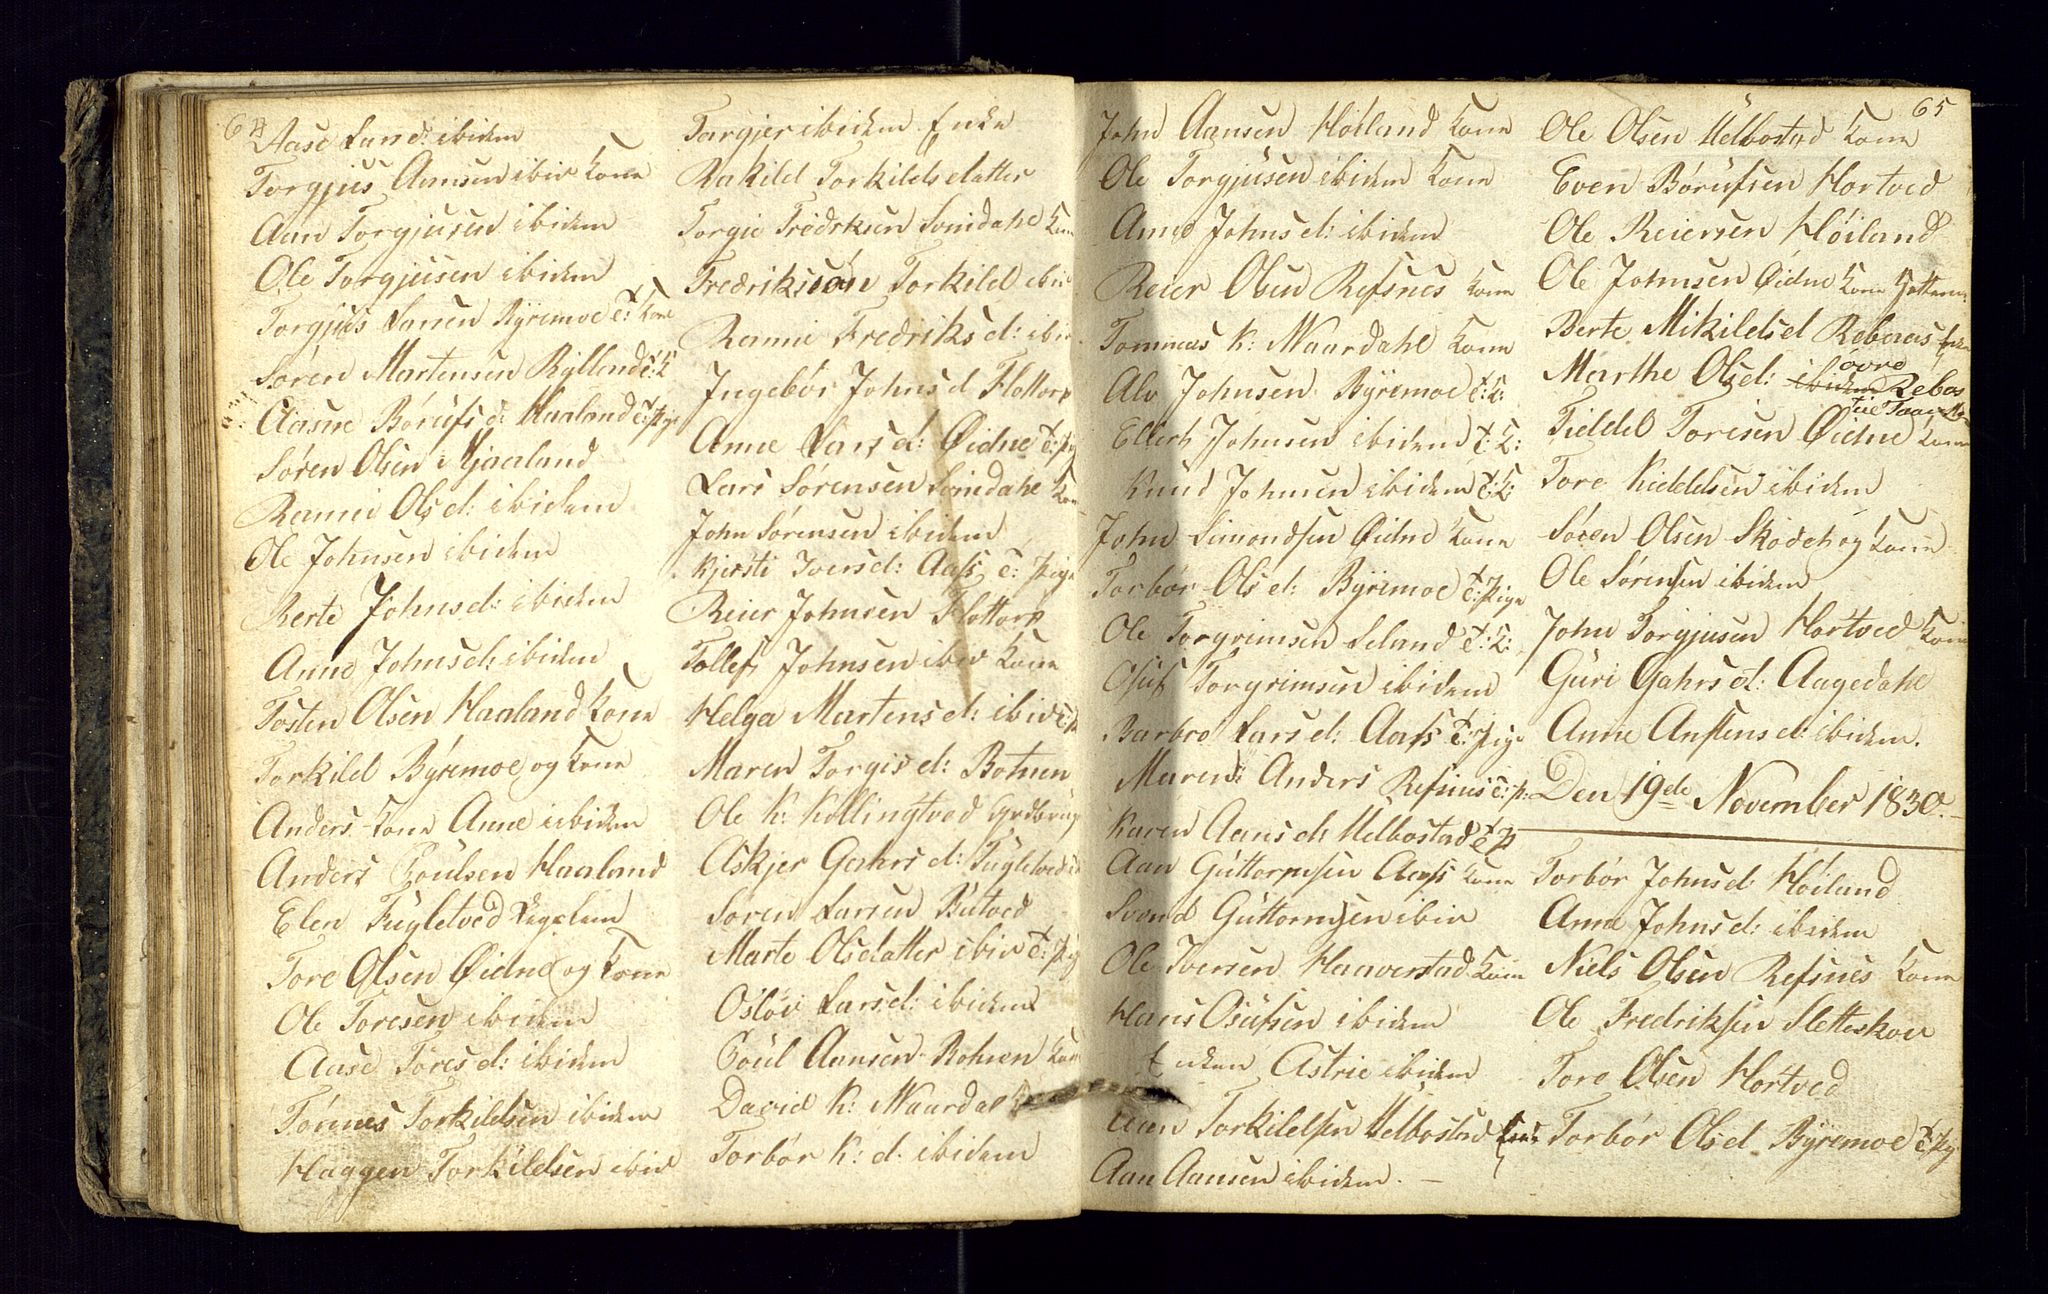 64
Aase Lars d: ibidem
Torgjus Aansen ibid Kone
Aan Torgjusen ibidem
Ole Torgjusen ibidem
Torgjus Larsen Byremoe t: Kone
Søren Martensen Bÿlland t: K
Aasne Børufs d: Haaland t: Pige
Søren Olsen Mjaaland
Rannei Ols d: ibidem
Ole Johnsen ibidem
Berte Johns d: ibidem
Anne Johns d: ibidem
Tosten Olsen Haaland Kone
Torkild Byremoe og Kone
Anders Kone Anne ibidem
Anders Poulsen Haaland
Elen Fugletved
Tore Olsen Øidne og Kone
Ole Toresen ibidem
Aase Tores d: ibidem
Tønnes Torkildsen ibidem
Haagen Torkildsen ibid
Torgjer ibidem Enke
Rakild Torkilds datter
Torgie Fredriksen Svindahl Kone
Fredriksen Torkild ibid
Rannie Fredriks d: ibid
Ingebør Johns d Flottorp
Anne Lars d: Øidne t: Pig
Lars Sørensen Svindahl Kone
John Sørensen ibidem
Kjersti Ivers d: Aass t: Pige
Reier Johnsen Flottorp
Tollef Johnsen ibid Kone
Helga Martens d: ibid t: P
Maren Torgis d: Botnen
Ole K: Kollingtved
Askjer Gahrs d: Fugletved
Søren Larsen Butved
Marte Olsdatter ibid t: Pig
Osløv Lars d: ibidem
Poul Aansen Rohnen Kone
David K: Waardal
Torbør K: d. ibidem
65
John Aansen Høiland Kone
Ole Torgjusen ibidem Kone
Anne Johns d: ibidem
Reier Olsen Refsnes Kone
Tommas K: Waardahl Kone
Alv Johnsen Byremoe t: K:
Ellert Johnsen ibidem t: K:
Knud Johnsen ibidem t: K:
John Simondsen Øidne Kone
Torbør Ols d: Byremoe t: Pige
Ole Torgrimsen Seland t: K:
Osuf Torgrimsen ibidem
Barbro Lars d: Aass t: Pige
Maren Anders Refsnes t: p:
Karen Aans d: Helbostad t: P
Aan Guttormsen Aass Kone
Svend Guttormsen ibid
Ole Iversen Haaverstad Kone
Hans Osufsen ibidem
Enken Astrie ibidem
Aan Torkildsen Helbostad Kone
Aan Aansen ibidem. —
Ole Olsen Helbostad Kone
Even Børufsen Hortved
Ole Reiersen Høiland
Ole Johnsen Øidne Kone
Berte Mikilds d Rebaas Enke
Marthe Ols d: ibidem øvre Rebos
Fieldel Toresen Øidne Kone
Tore Kieldelsen ibidem
Søren Olsen Skoden og Kone
Ole Sørensen ibidem
John Torgjusen Hortved Kone
Guri Gahrs d: Aagedahl
Anne Anstens d: ibidem.
Den 19de November 1830.
Torbør Johns d: Høiland
Anne Johns d: ibidem
Niels Olsen Refsnes Kone
Ole Fredriksen Sletteskou
Tore Olsen Hortved
Torbør Ols d Byremoe t: Pig